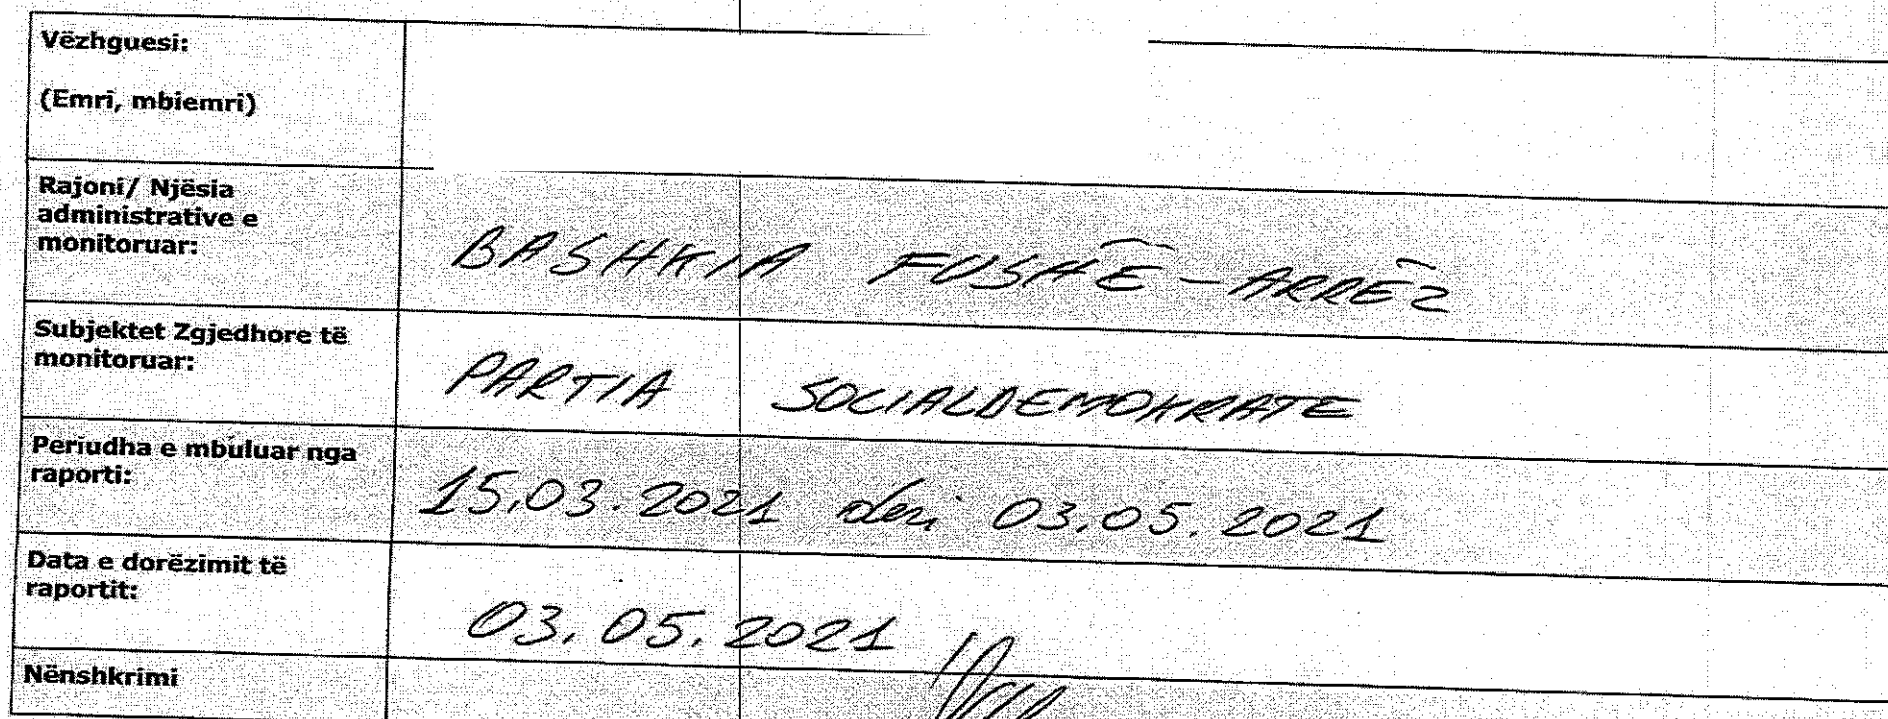 Vëzhguesi:
(Emri, mbiemri)
Rajoni/ Njësia
administrative e
monitoruar:
BASHKIA FUSHË-ARRËZ
Subjektet Zgjedhore të
monitoruar:
PARTIA SOCIALDEMOKRATE
Periudha e mbuluar nga
raporti:
15.03.2021 deri 03.05.2021
Data e dorëzimit të
raportit:
03.05.2021
Nënshkrimi